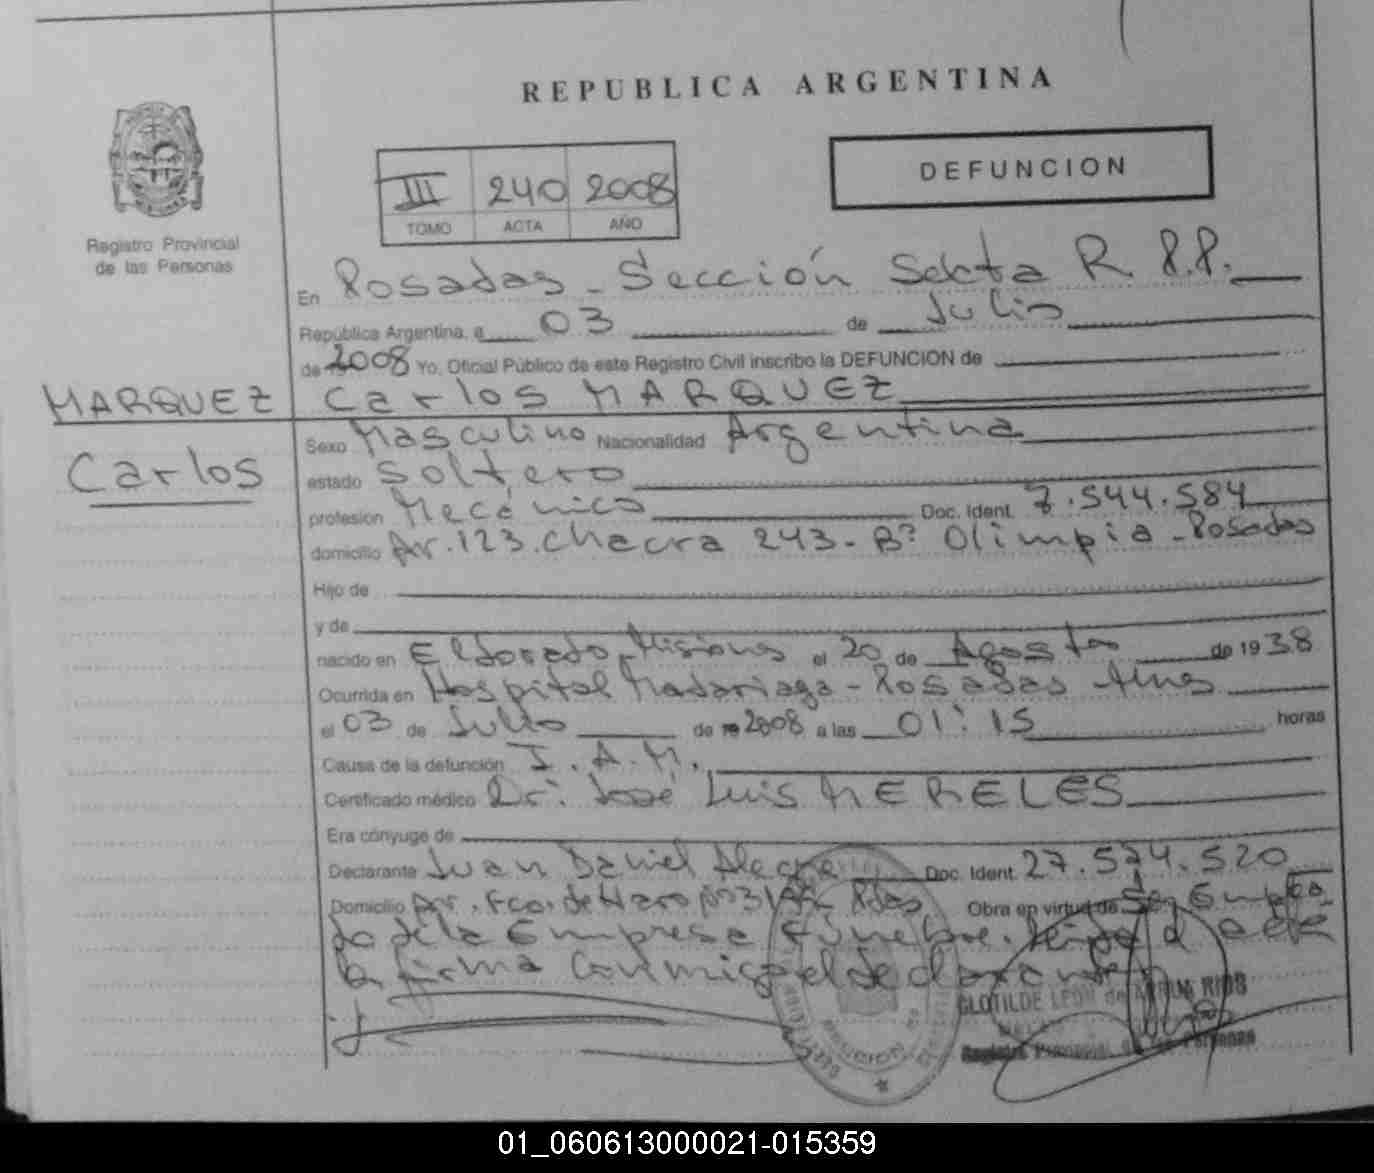 REPUBLICA ARGENTINA
Registro Provincial
de las Personas
III 240 2008
TOMO ACTA AÑO
DEFUNCION
En Posadas - Sección Sexta R. P. P.
República Argentina, a 03 de Julio
de 2008 Yo, Oficial Público de este Registro Civil inscribo la DEFUNCION de
MARQUEZ Carlos MARQUEZ
Carlos
Sexo Masculino Nacionalidad Argentina
estado Soltero
profesion Mecánico Doc. Ident. 7.544.584
domicilio Av. 123. chacra 243 - Bº Olimpia - Posadas
Hijo de
y de
nacido en Eldorado Misiones el 20 de Agosto de 1938
Ocurrida en Hospital Madariaga - Posadas Mnes
el 03 de Julio de 2008 a las 01:15 horas
Causa de la defunción I. A. M.
Certificado médico Dr. José Luis MERELES
Era cónyuge de
Declarante Juan Daniel Alegre Doc. Ident. 27.574.520
Domicilio Av. Fco. de Haro Pdas Obra en virtud de Ser Emplea
do de la Empresa Fúnebre. Leída el acta
la firma Conmigo el declarante
CLOTILDE LEON de
Registro Provincial de las Personas
01_060613000021-015359